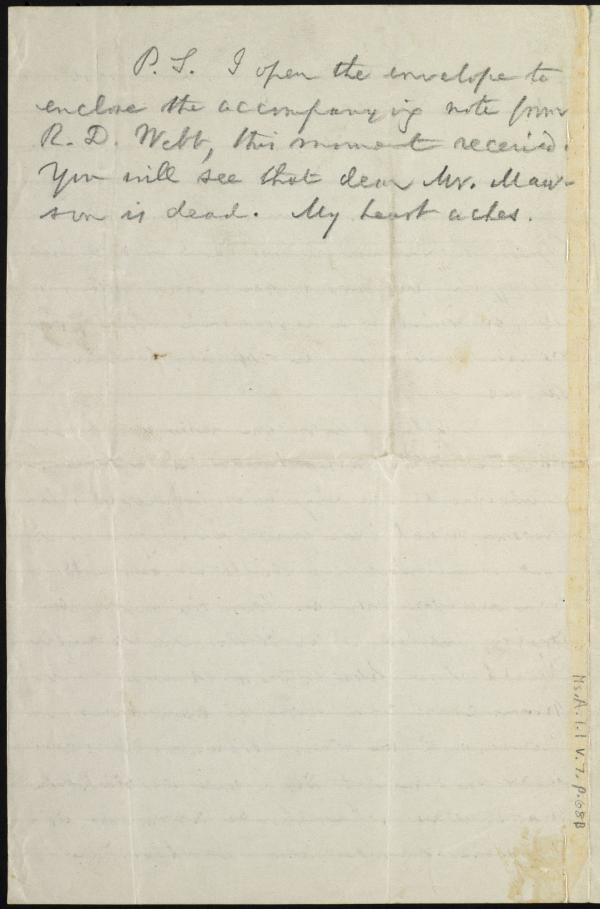 P. S. I open the envelope to
enclose the accompanying note from
R. D. Webb, this moment received.
You will see that dear Mr. Maw-
son is dead. My heart aches.
Ms. A. 1. 1 v. 7, p. 68B